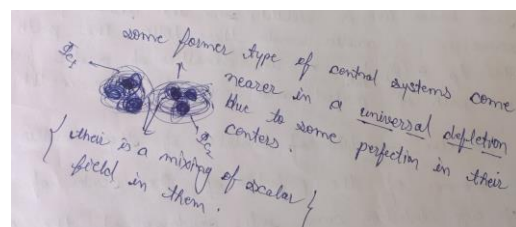 some former type of control systems come
nearer in a universal depletion
due to some perfection in their
centers.
{ their is a mixing of scalar }
field in them.